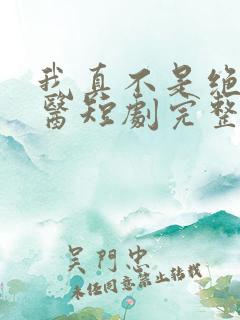 我真不是絕
醫短劇完整
吳門忠
未經同意禁止轉載